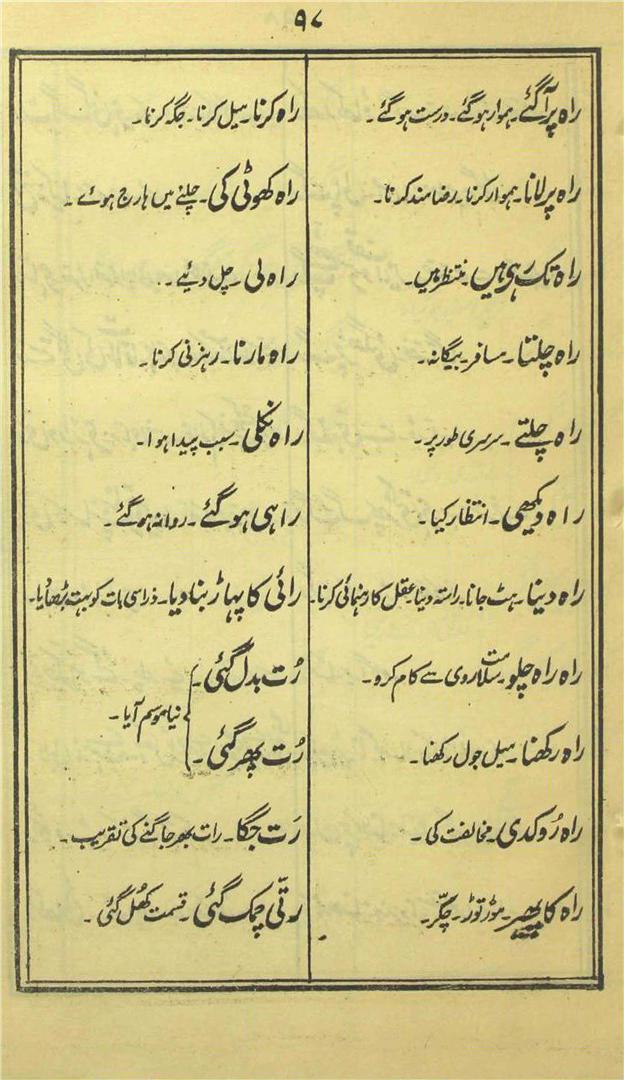 ۹۷
راہ پر آگئے۔ ہموار ہوگئے۔ درست ہوگئے۔
راہ پر لانا۔ ہموار کرنا۔ رضامند کرنا۔
راہ تک رہی ہیں۔ منتظر ہیں۔
راہ چلتا۔ مسافر۔ بیگانہ۔
راہ چلتے۔ سرسری طور پر۔
راہ دیکھی۔ انتظار کیا۔
راہ دینا۔ ہٹ جانا۔ راستہ دینا۔ عقل کا رہنمائی کرنا۔
راہ راہ چلو۔ سلامت روی سے کام کرو۔
راہ رکھنا۔ میل جول رکھنا۔
راہ روکدی۔ مخالفت کی۔
راہ کا پھیر۔ موڑ توڑ۔ چکّر۔
راہ کرنا۔ میل کرنا۔ جگہ کرنا۔
راہ کھوٹی کی۔ چلنے میں ہارج ہوئے۔
راہ لی۔ چل دیئے۔
راہ مارنا۔ رہزنی کرنا۔
راہ نکلی۔ سبب پیدا ہوا۔
راہی ہوگئے۔ روانہ ہوگئے۔
رائی کا پہاڑ بنا دیا۔ ذرا سی بات کو بہت بڑھا دیا۔
رُت بدل گئی۔
رُت پھر گئی۔
نیا موسم آیا۔
رَت جگا۔ رات بھر جاگنے کی تقریب۔
رتّی چمک گئی۔ قسمت کھُل گئی۔